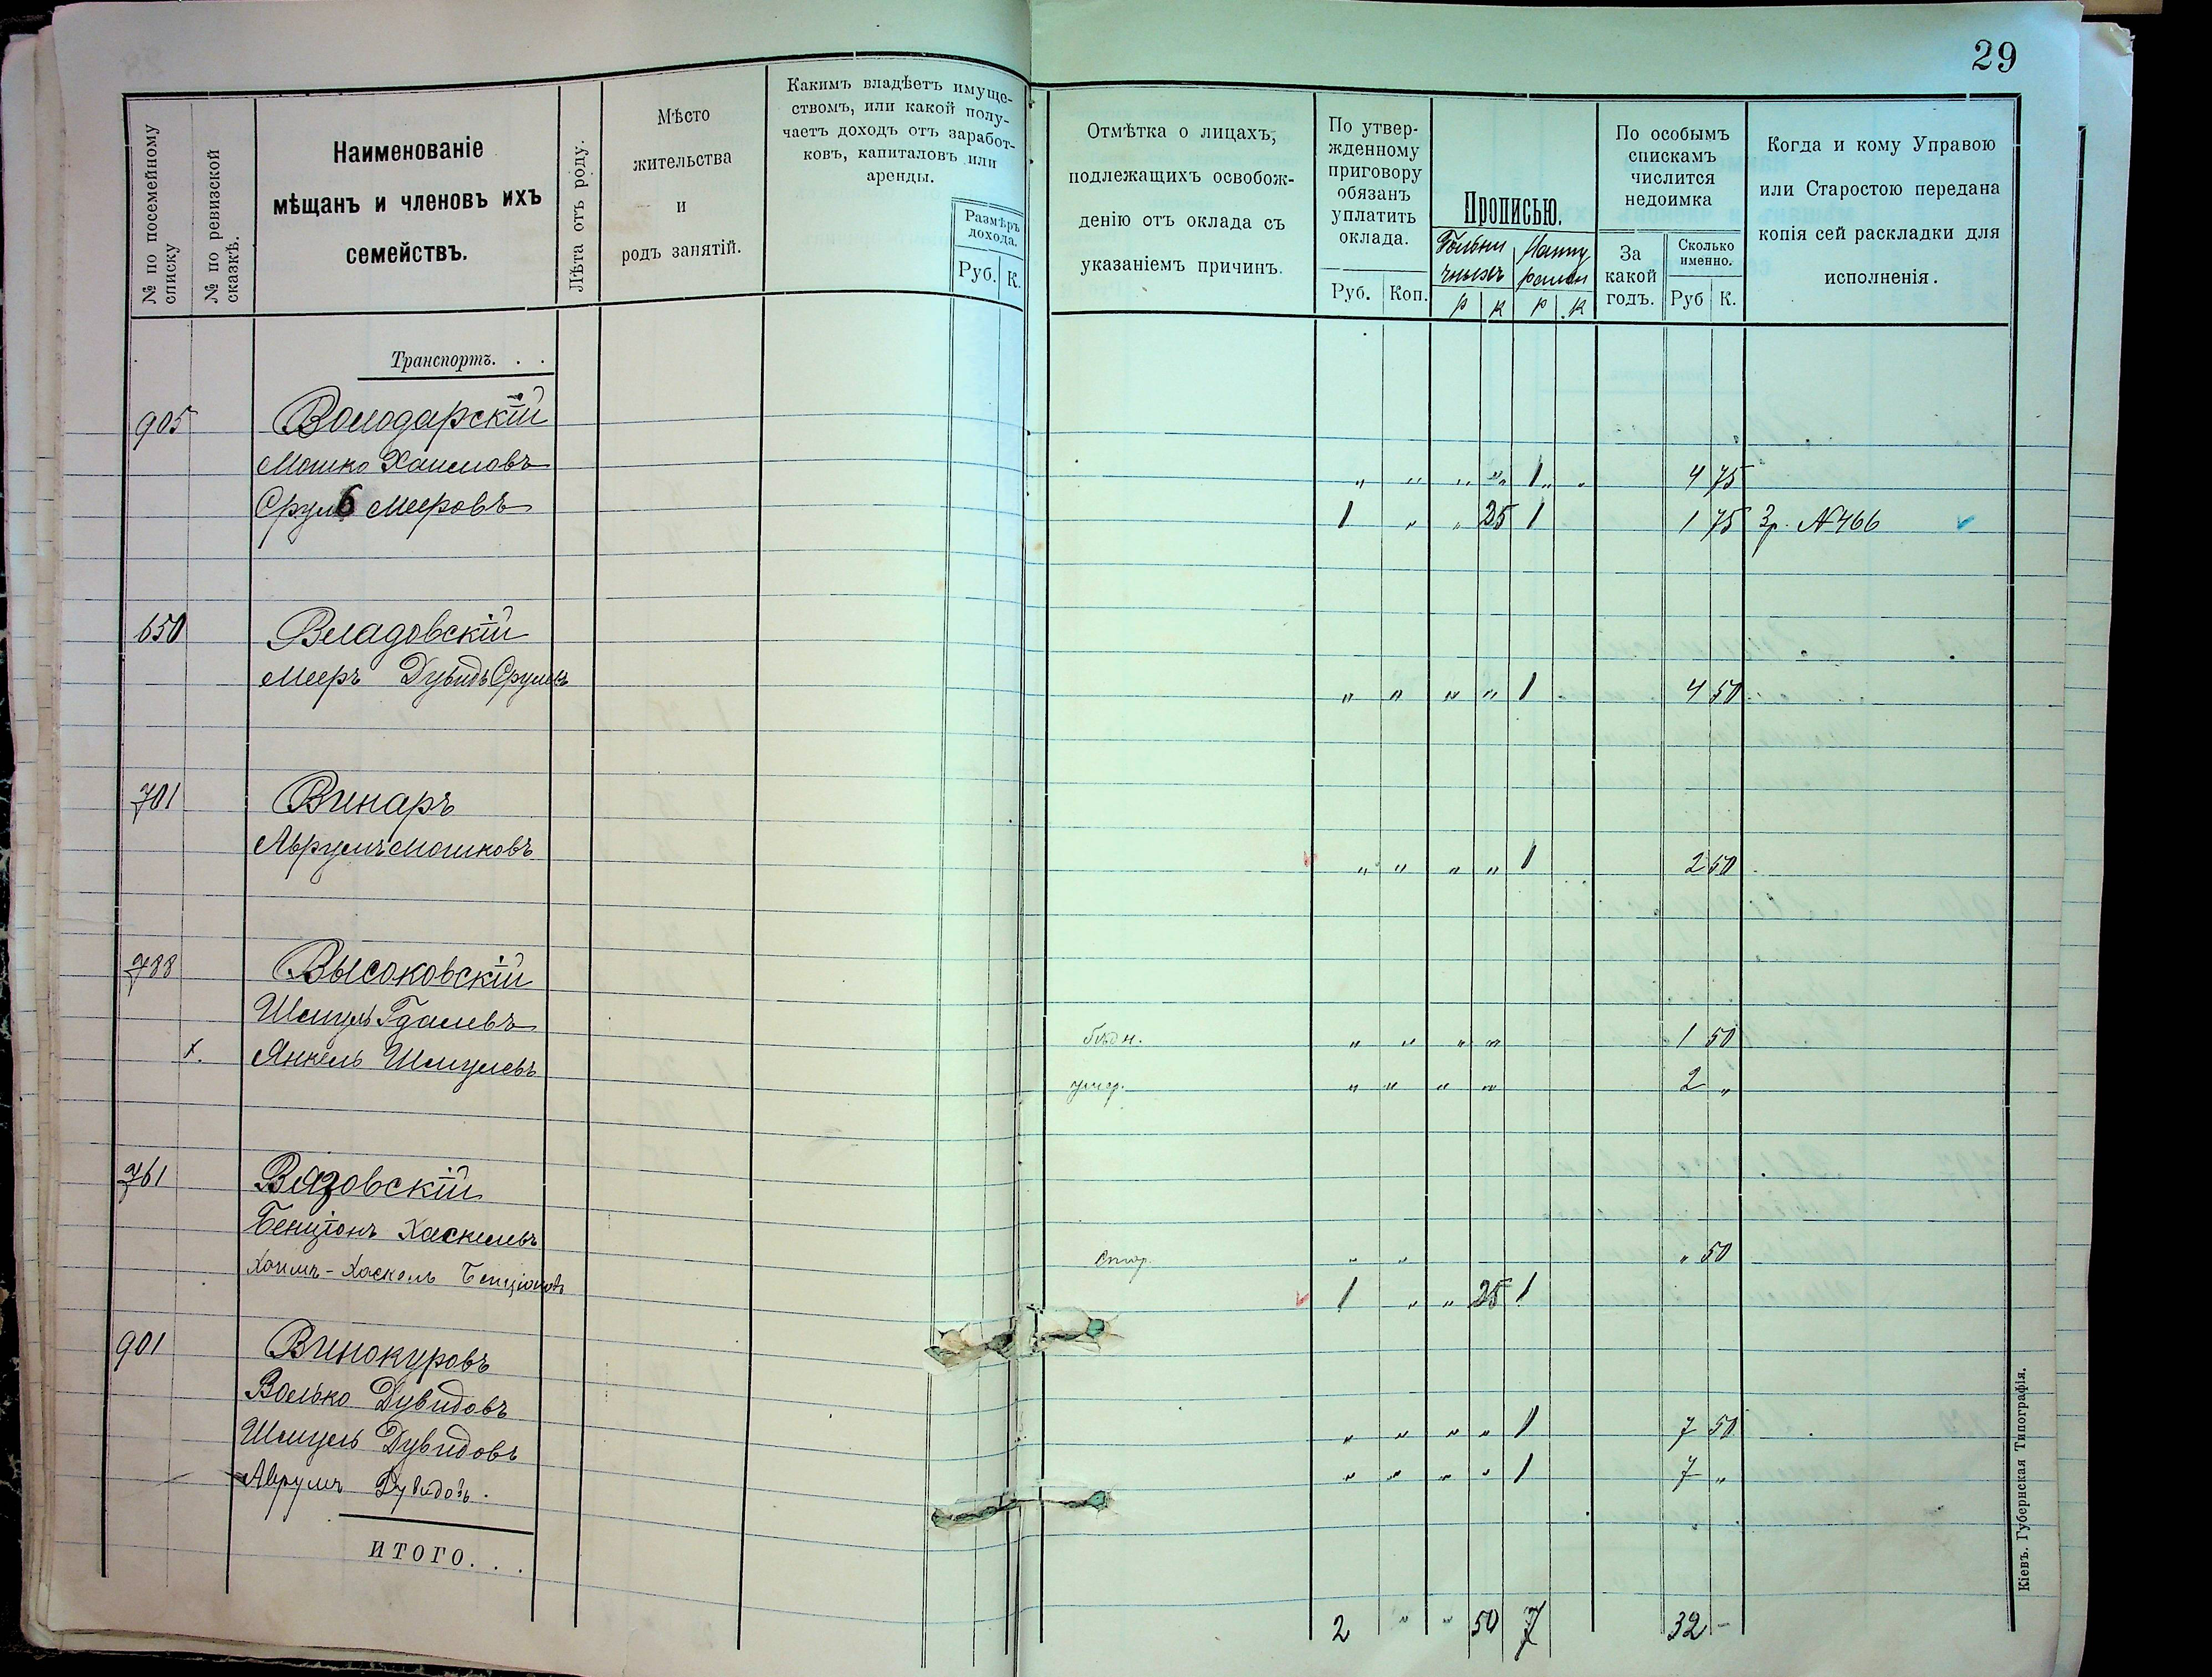 29
№ по посемейному списку
№ по ревизской сказкѣ.
Наименованіе
мѣщанъ и членовъ ихъ
семействъ.
Лѣта отъ роду.
Мѣсто
жительства
и
родъ занятій.
Какимъ владѣетъ имуще-
ствомъ, или какой полу-
чаетъ доходъ отъ заработ-
ковъ, капиталовъ или
аренды.
Размѣръ
дохода.
Руб. К.
Отмѣтка о лицахъ,
подлежащихъ освобож-
денію отъ оклада съ
указаніемъ причинъ.
По утвер-
жденному
приговору
обязанъ
уплатить
оклада.
Руб. Коп.
Прописью.
р к р к
По особымъ
спискамъ
числится
недоимка
За
какой
годъ.
Сколько
именно.
Руб К.
Когда и кому Управою
или Старостою передана
копія сей раскладки для
исполненія.
Транспортъ. . .
905 Володарскій
Мошко Хаимовъ " " " " 1 " " 4 75
Сруль Мееровъ 1 " " 25 1 1 75 Зр. № 466
650 Владовскій
Мееръ Дувидъ Срулевъ " " " " 1 4 50
701 Винаръ
Аврумъ Мошковъ " " " " 1 2 50
788 Высоковскій
Шмуль Гдалевъ бѣдн. " " " " 1 50
х. Янкель Шмулевъ умер. " " " " 2 "
761 Вязовскій
Бенціонъ Хаскелевъ стар. " " " 50
Хаимъ-Хаскель Бенціоновъ 1 " " 25 1
901 Винокуровъ
Волько Дувидовъ " " " " 1 7 50
Шмуль Дувидовъ " " " " 1 7 "
Аврумъ Дувидовъ.
ИТОГО. . .
2 " " 50 7 32 -
Кіевъ. Губернская Типографія.